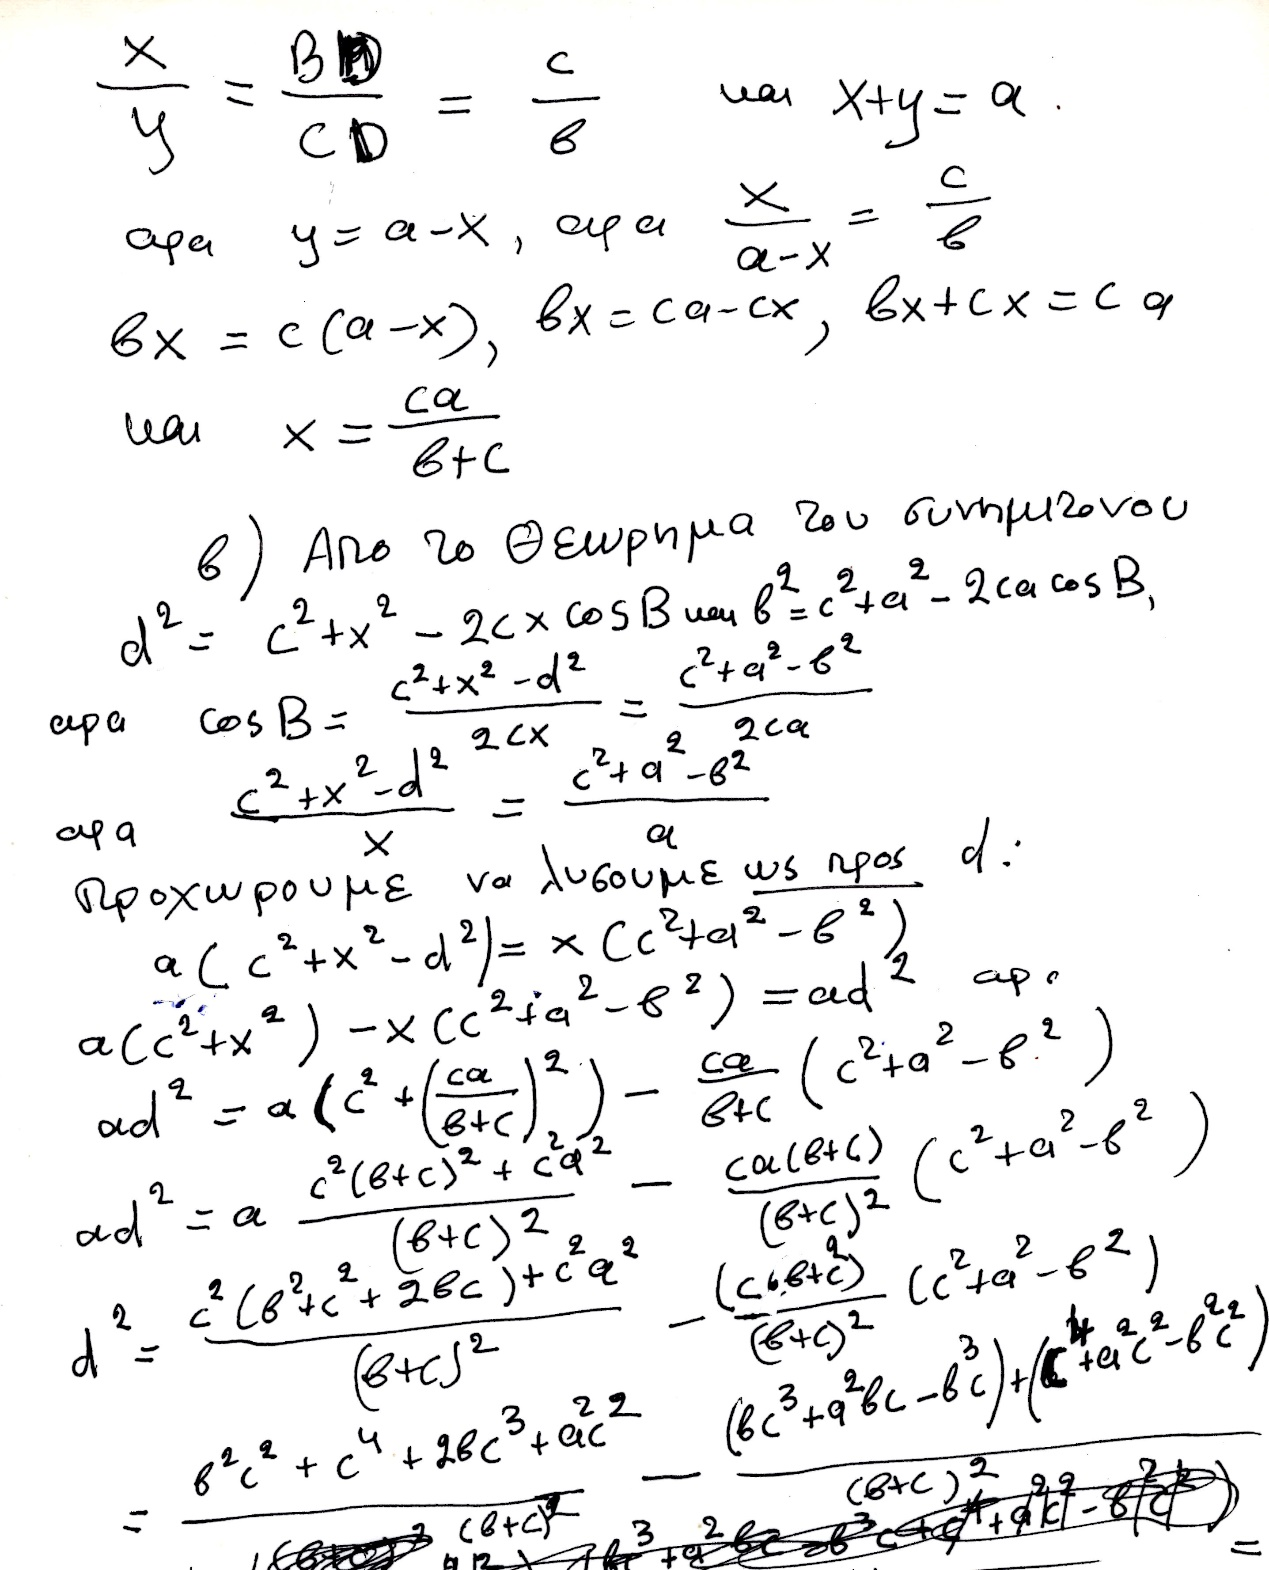 x/y = BD/CD = c/β και x+y = a.
αρα y = a-x, αρα x/(a-x) = c/β
βx = c(a-x), βx = ca-cx, βx+cx = ca
και x = ca/(β+c)
β) Απο το Θεωρημα του συνημιτονου
d² = c²+x² - 2cx cosB και β² = c²+a² - 2ca cosB,
αρα cosB = (c²+x²-d²)/(2cx) = (c²+a²-β²)/(2ca)
αρα (c²+x²-d²)/x = (c²+a²-β²)/a
Προχωρουμε να λυσουμε ως προς d:
a(c²+x²-d²) = x(c²+a²-β²)
a(c²+x²) - x(c²+a²-β²) = ad²
ad² = a(c² + (ca/(β+c))²) - ca/(β+c) (c²+a²-β²)
ad² = a (c²(β+c)² + c²a²)/(β+c)² - ca(β+c)/(β+c)² (c²+a²-β²)
d² = (c²(β²+c²+2βc)+c²a²)/(β+c)² - (cβ+c²)/(β+c)² (c²+a²-β²)
= (β²c² + c⁴ + 2βc³ + a²c²)/(β+c)² - ((βc³+a²βc-β³c)+(c⁴+a²c²-β²c²))/(β+c)²
=